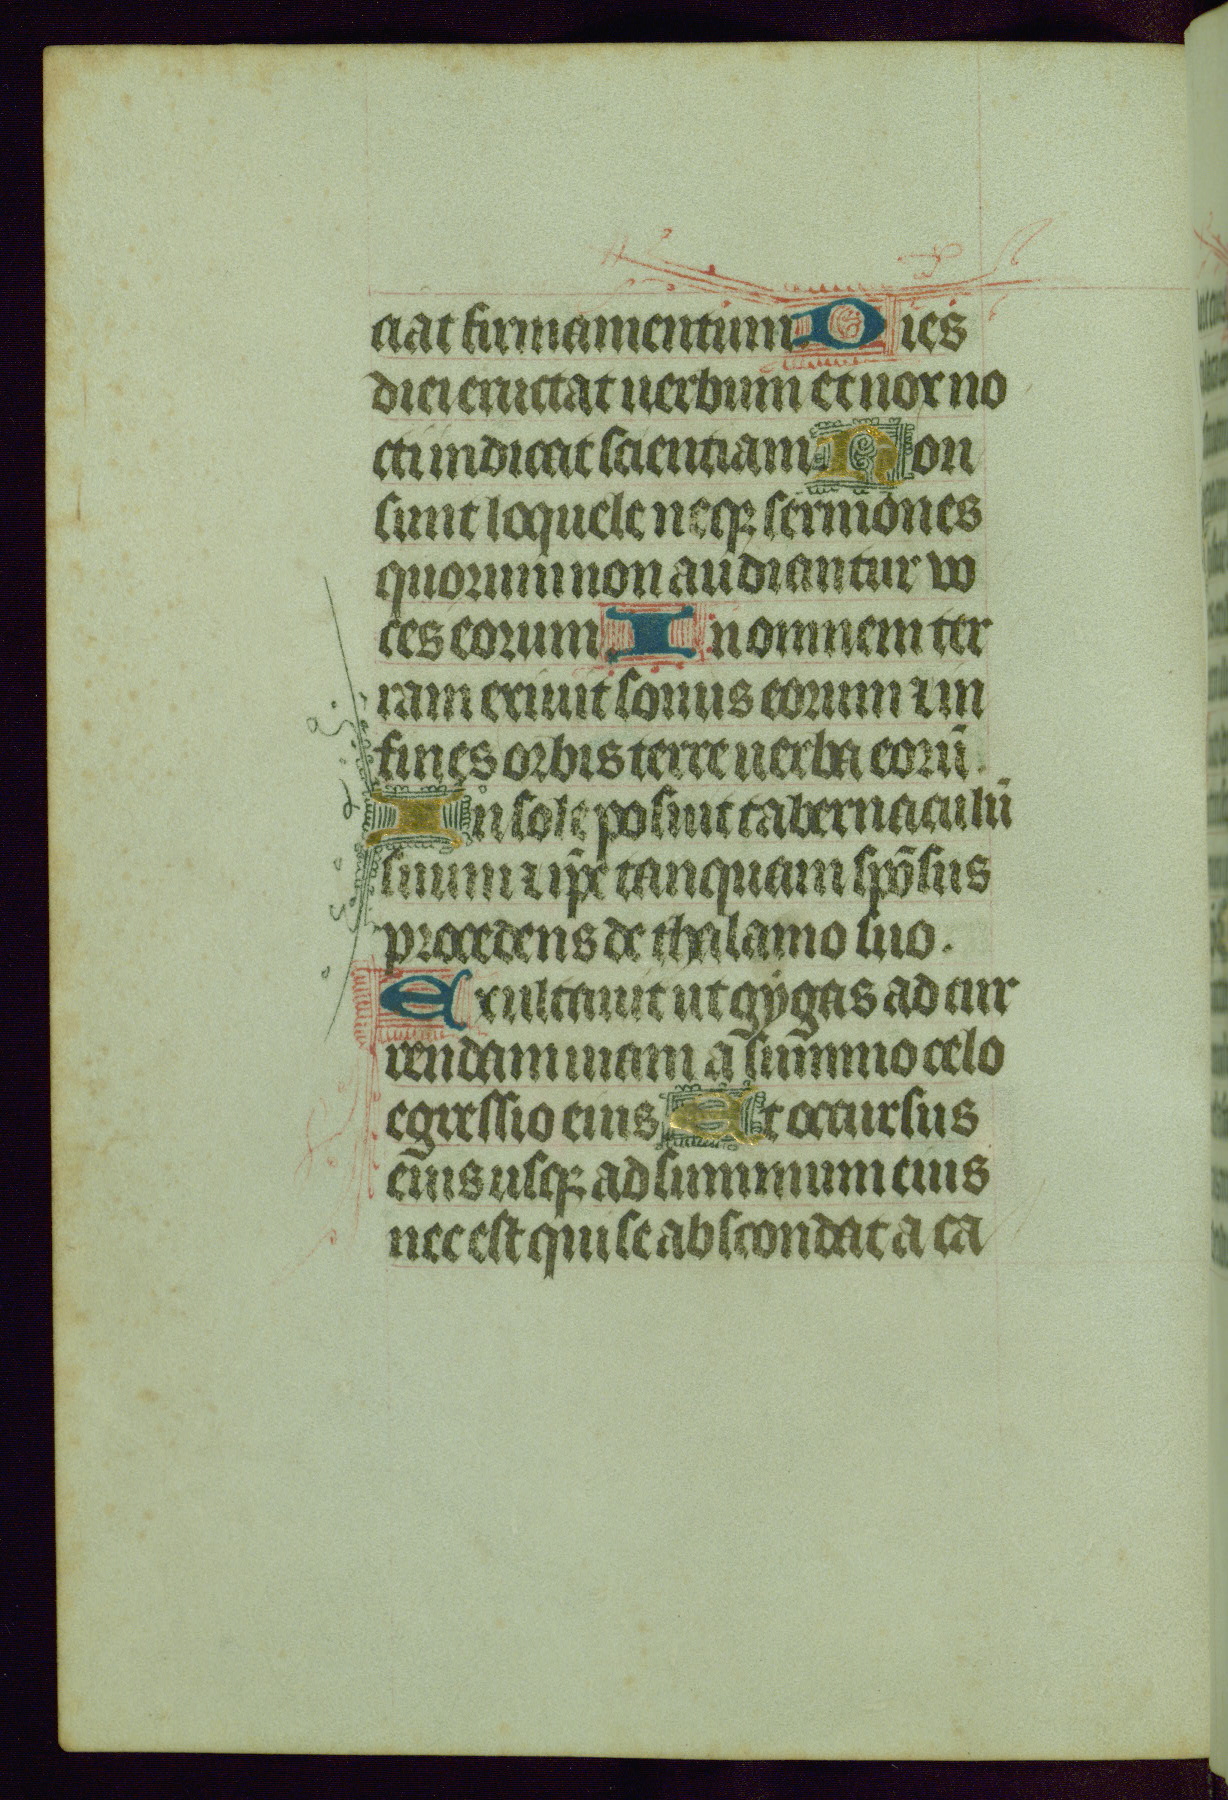 ciat firmamentum. Dies
diei eructat uerbum et nox no
cti indicat scientiam. Non
sunt loquele neqꝫ sermones
quorum non audiantur vo
ces eorum. In omnem ter
ram exiuit sonus eorum ⁊ in
fines orbis terre uerba eorū.
In sole posuit tabernaculū
suum ⁊ ip̄e tanquam spōsus
procedens de thalamo suo.
Exultauit ut gygas ad cur
rendam uiam a summo celo
egressio eius Et occursus
eius usqꝫ ad summum eius
nec est qui se abscondat a ca